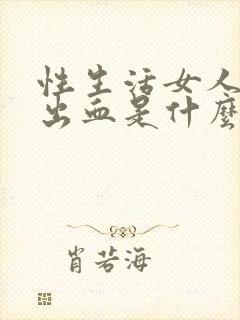 性生活女人
出血是什麼
肖若海